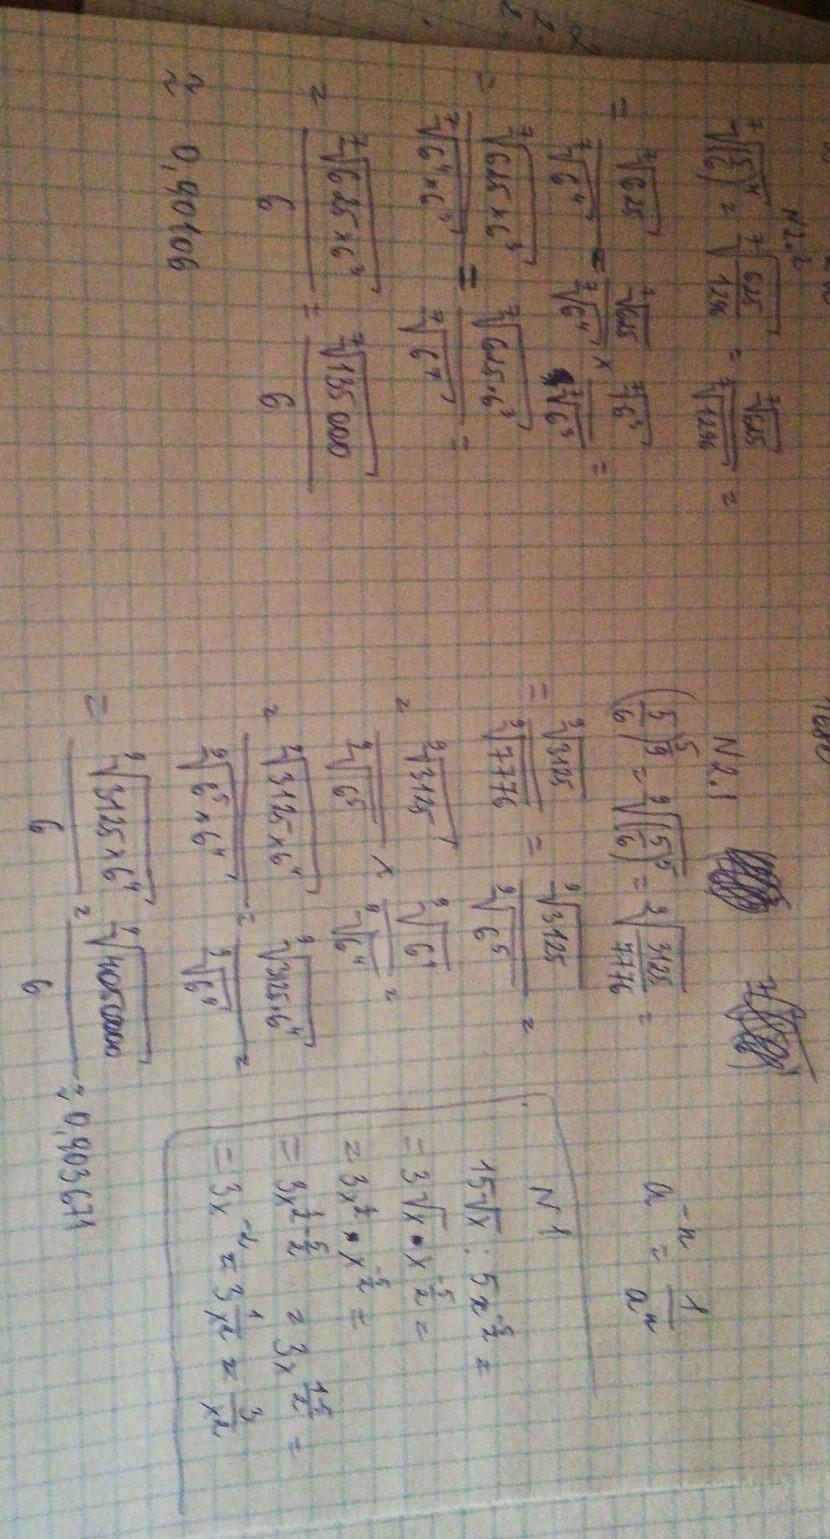 N2.2
⁷√(5/6)⁴ = ⁷√625/1296 = ⁷√625/⁷√1296 =
= ⁷√625/⁷√6⁴ = ⁷√625/⁷√6⁴ × ⁷√6³/⁷√6³ =
= ⁷√625×6³/⁷√6⁴×6³ = ⁷√625·6³/⁷√6⁷ =
= ⁷√625×6³/6 = ⁷√135000/6
≈ 0,90106
N2.1
(5/6)^5/9 = ⁹√(5/6)⁵ = ⁹√3125/7776 =
= ⁹√3125/⁹√7776 = ⁹√3125/⁹√6⁵ =
= ⁹√3125/⁹√6⁵ × ⁹√6⁴/⁹√6⁴ =
= ⁹√3125×6⁴/⁹√6⁵×6⁴ = ⁹√3125·6⁴/⁹√6⁹ =
= ⁹√3125×6⁴/6 = ⁹√4050000/6 ≈ 0,903671
a⁻ⁿ = 1/aⁿ
N1
15√x : 5x^5/2 =
= 3√x · x^-5/2 =
= 3x^1/2 · x^-5/2 =
= 3x^1/2-5/2 = 3x^1-5/2 =
= 3x⁻² = 3 1/x² = 3/x²